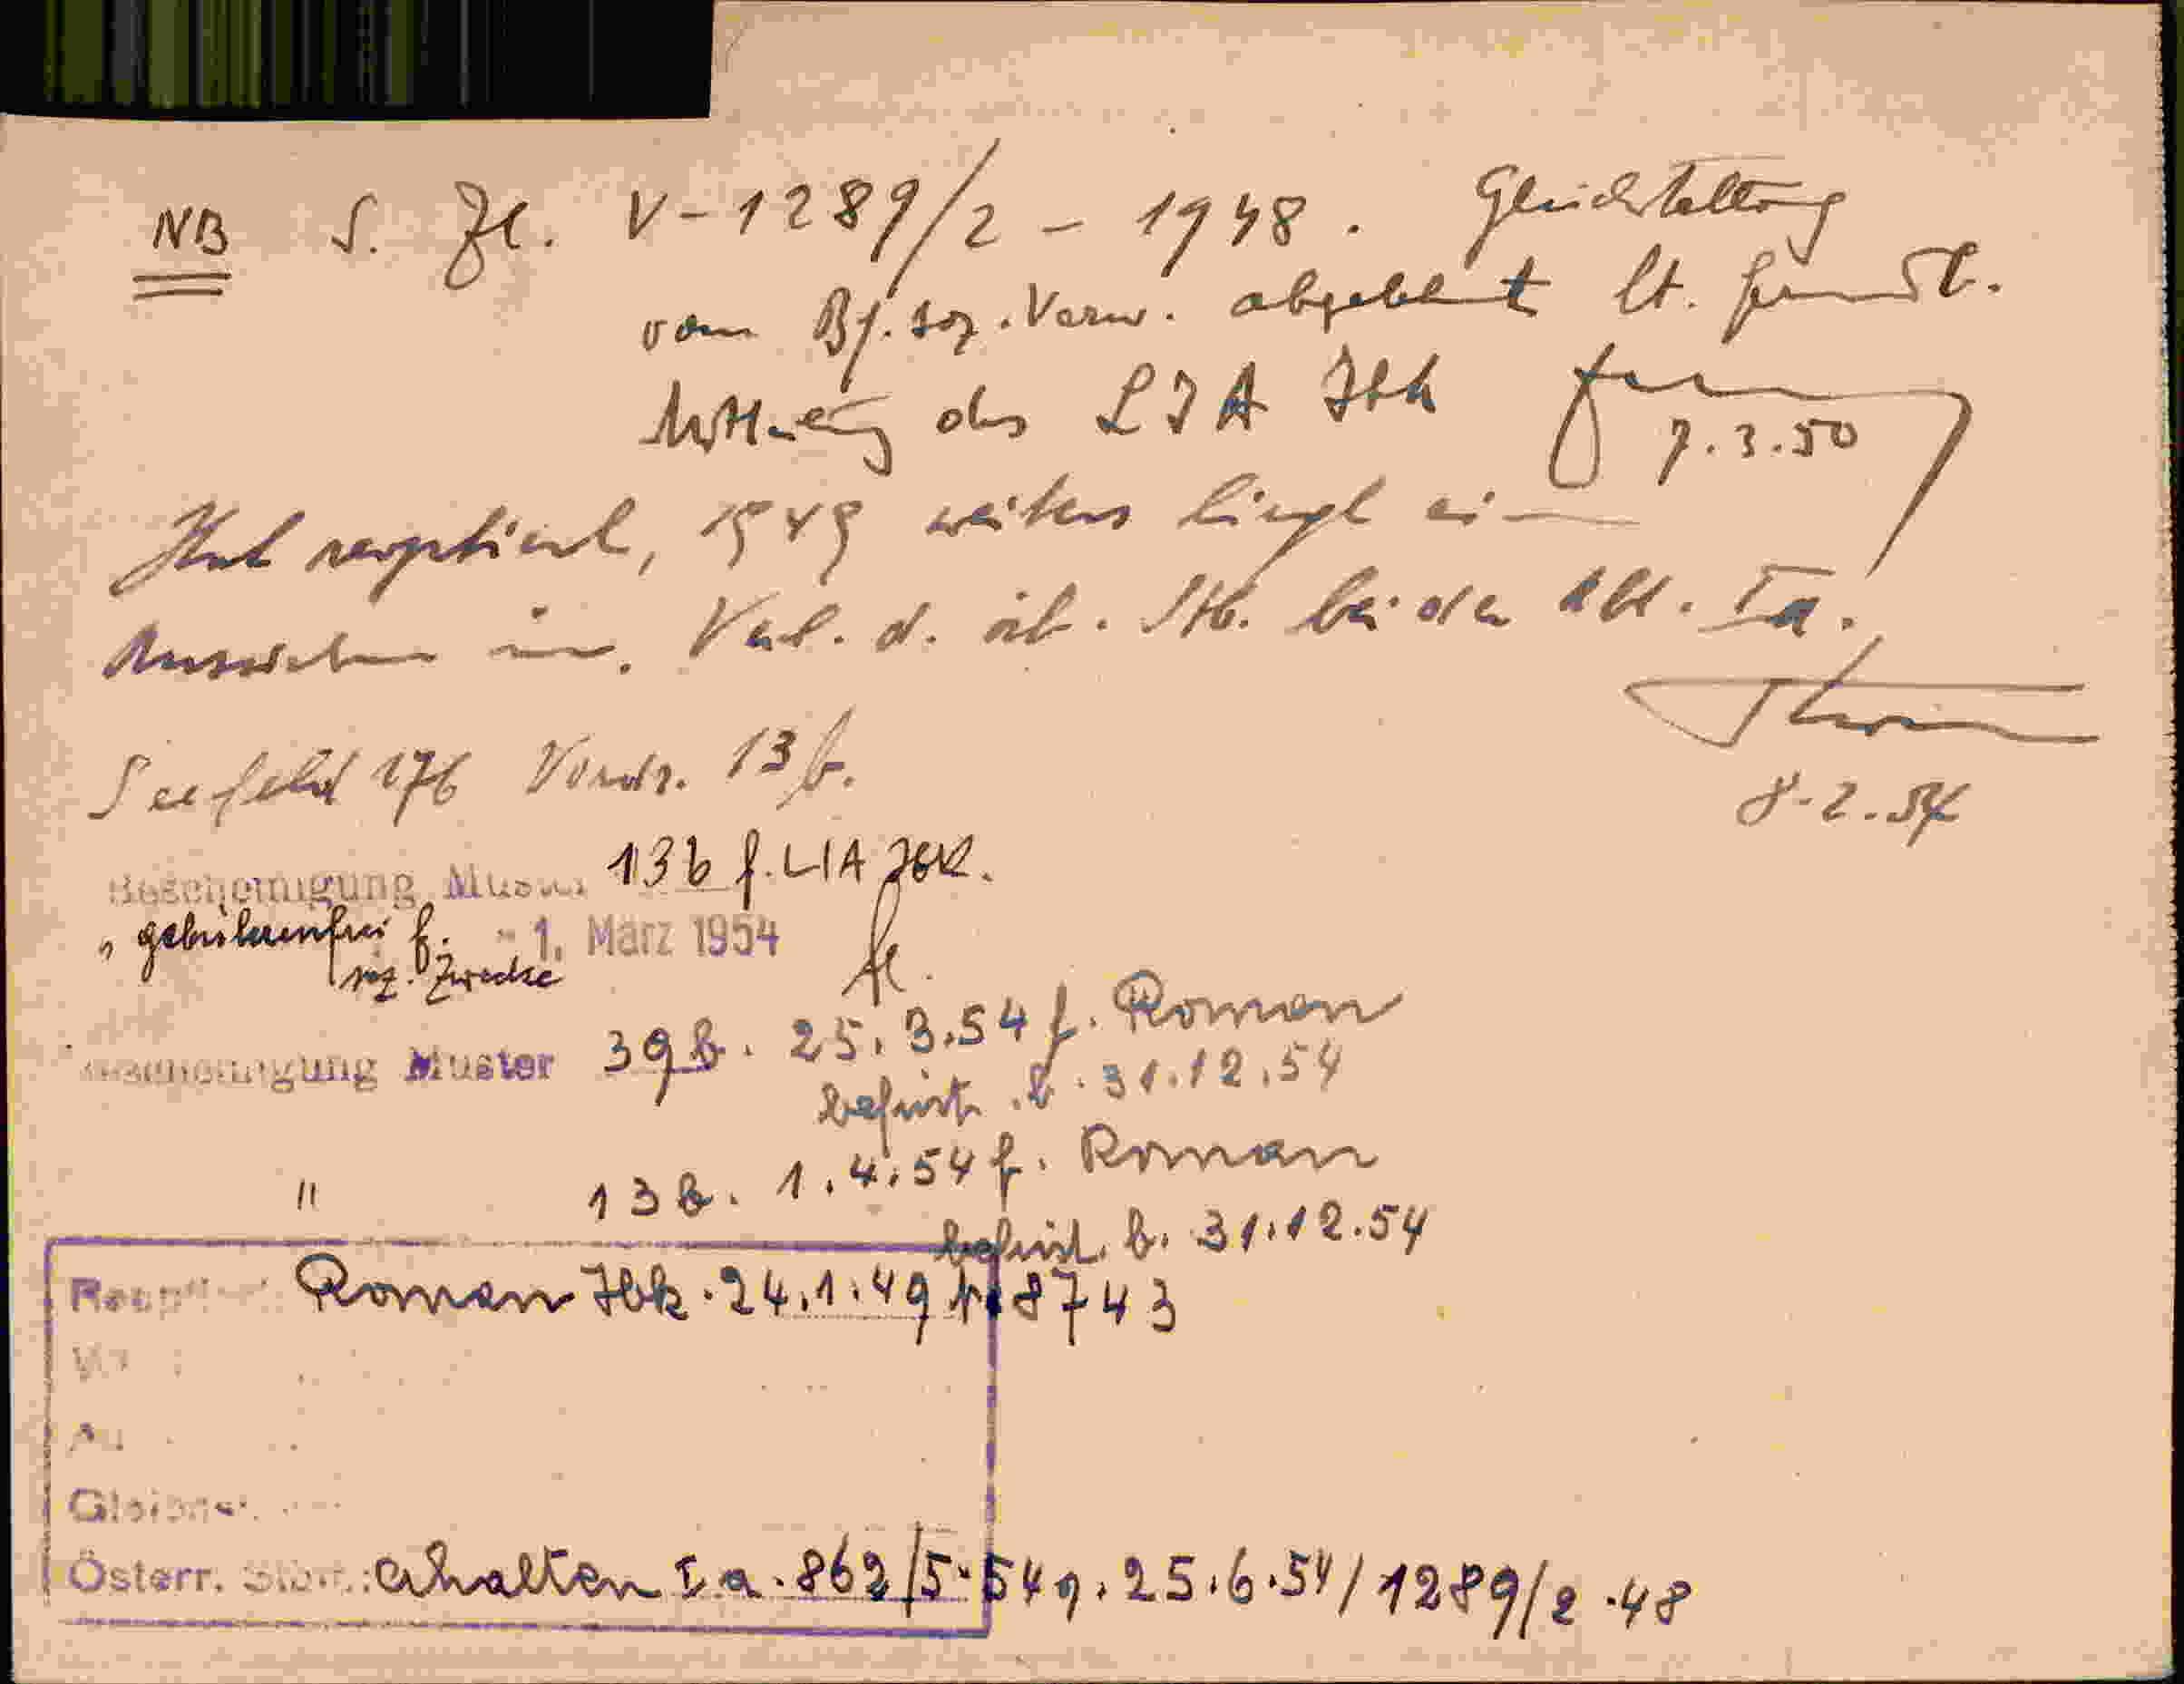 NB S. Zl. V-1289/2 - 1948. Gleichstellung
vom Bf. soz. Verw. abgelehnt lt.
Mitteilung des LIA Ibk
7.3.50
Hat reoptiert, 1949 weiters liegt ein
Ansuchen um Verl. d. öst. Stb. bei der Abt. Ia.
8.2.54
Seefeld 176 Vordr. 13b.
Bescheinigung Muster 13b f. LIA Ibk.
" gebührenfrei f. - 1. März 1954
soz. Zwecke
Bescheinigung Muster 39b. 25.3.54 f. Roman
befrist. b. 31.12.54
" 13b. 1.4.54 f. Roman
befrist. b. 31.12.54
Roman Ibk. 24.1.49 8743
Österr. erhalten I a. 862/5-54 9. 25.6.54/1289/2-48